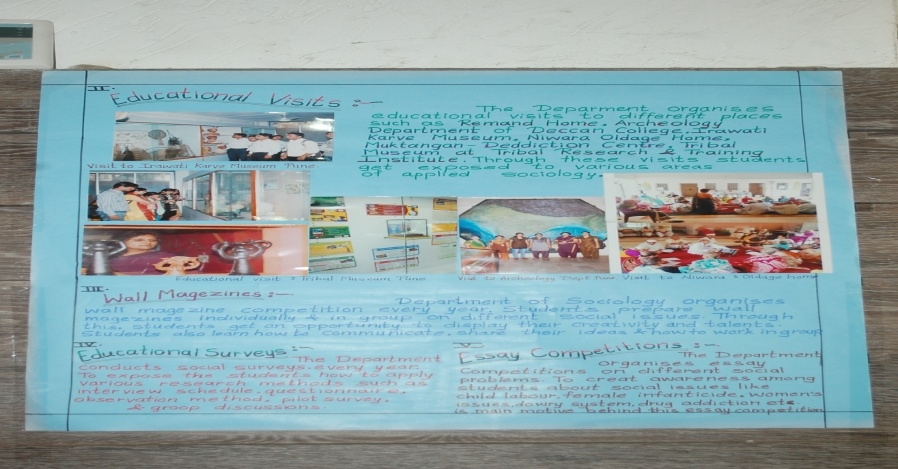 II.
Educational Visits :-
The Deparment organises
educational visits to different places
such as Remand Home, Archeology
Department of Deccan College, Irawati
Karve Museum, Niwara Oldage Home,
Muktangan - Deddiction Centre, Tribal
Museum at Tribal Research & Training
Institute. Through these visits students
get exposed to various areas
of applied sociology.
Visit to Irawati Karve Museum Pune
Educational visit : Tribal Museum Pune
Visit to Niwara : Oldage Home
III.
Wall Magezines :-
Department of Sociology organises
wall magezine competition every year. Students prepare wall
magezines individually & in group on different social issues. Through
this, students get on opportunity to display their creativity and talents.
Students also learn how to communicate & share our ideas & how to work in group
IV.
Educational Surveys :-
The Department
conducts social surveys every year.
To expose the students how to apply
various research methods such as
interview schedule, questionnaire,
observation method, pilot survey,
& group discussions.
V.
Essay Competitions :-
The Department
organises essay
Competitions on different social
problems. To creat awareness among
students about social issues like
child labour, female infanticide, women's
issues, dowry system, drug addiction etc
is main motive behind this essay competition